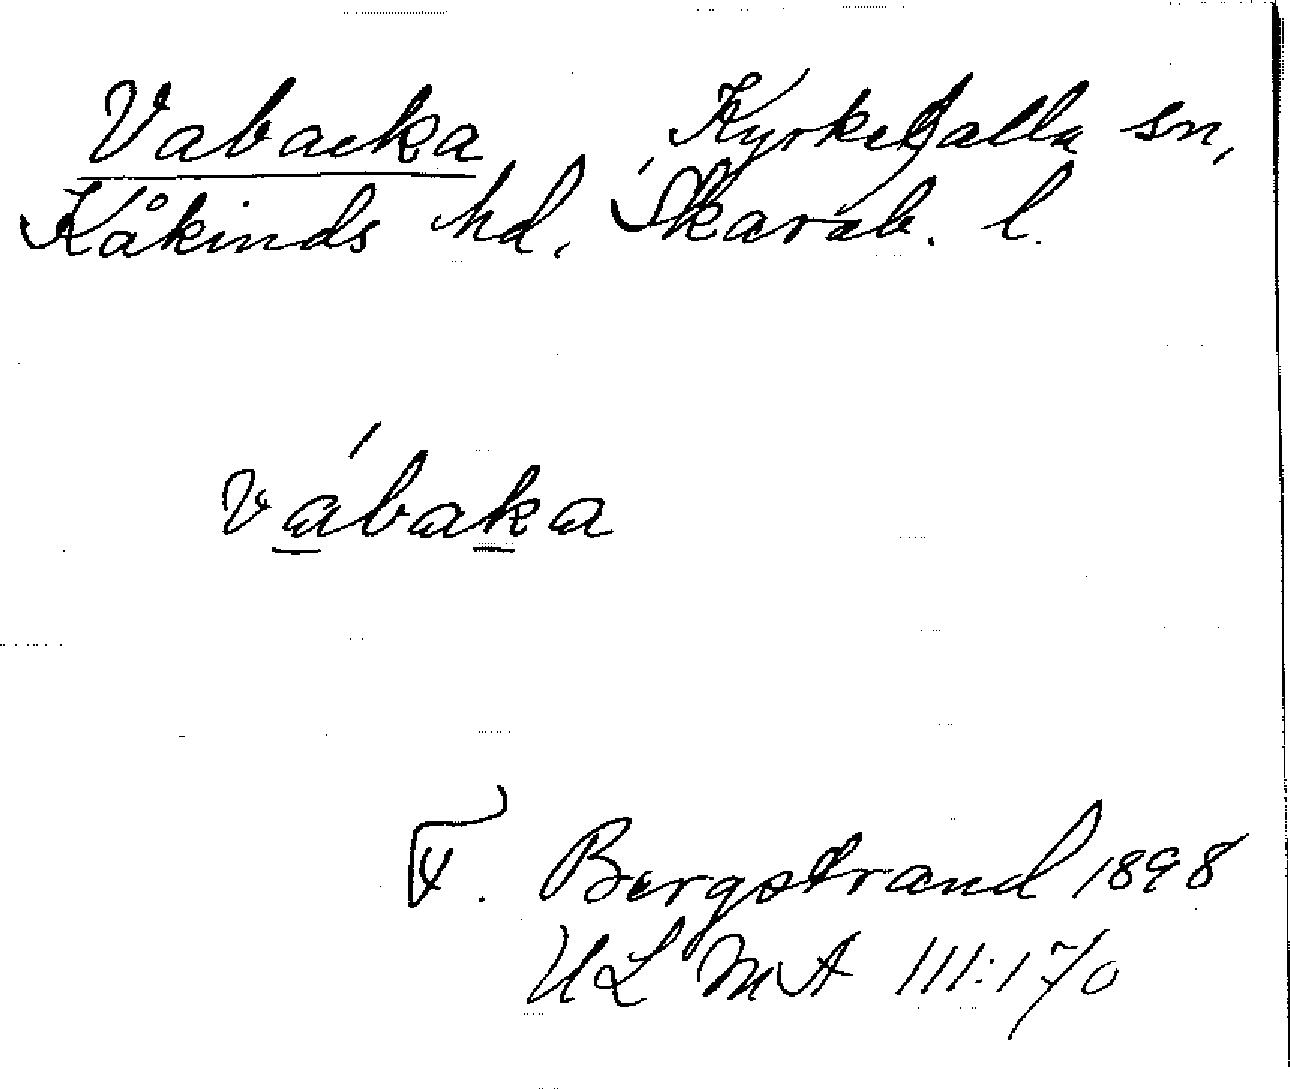 Vabacka Kyrkefalla sn,
Kåkinds hd, Skarab. l.
vábaka
F. Bergstrand 1898
ULMA 111:170